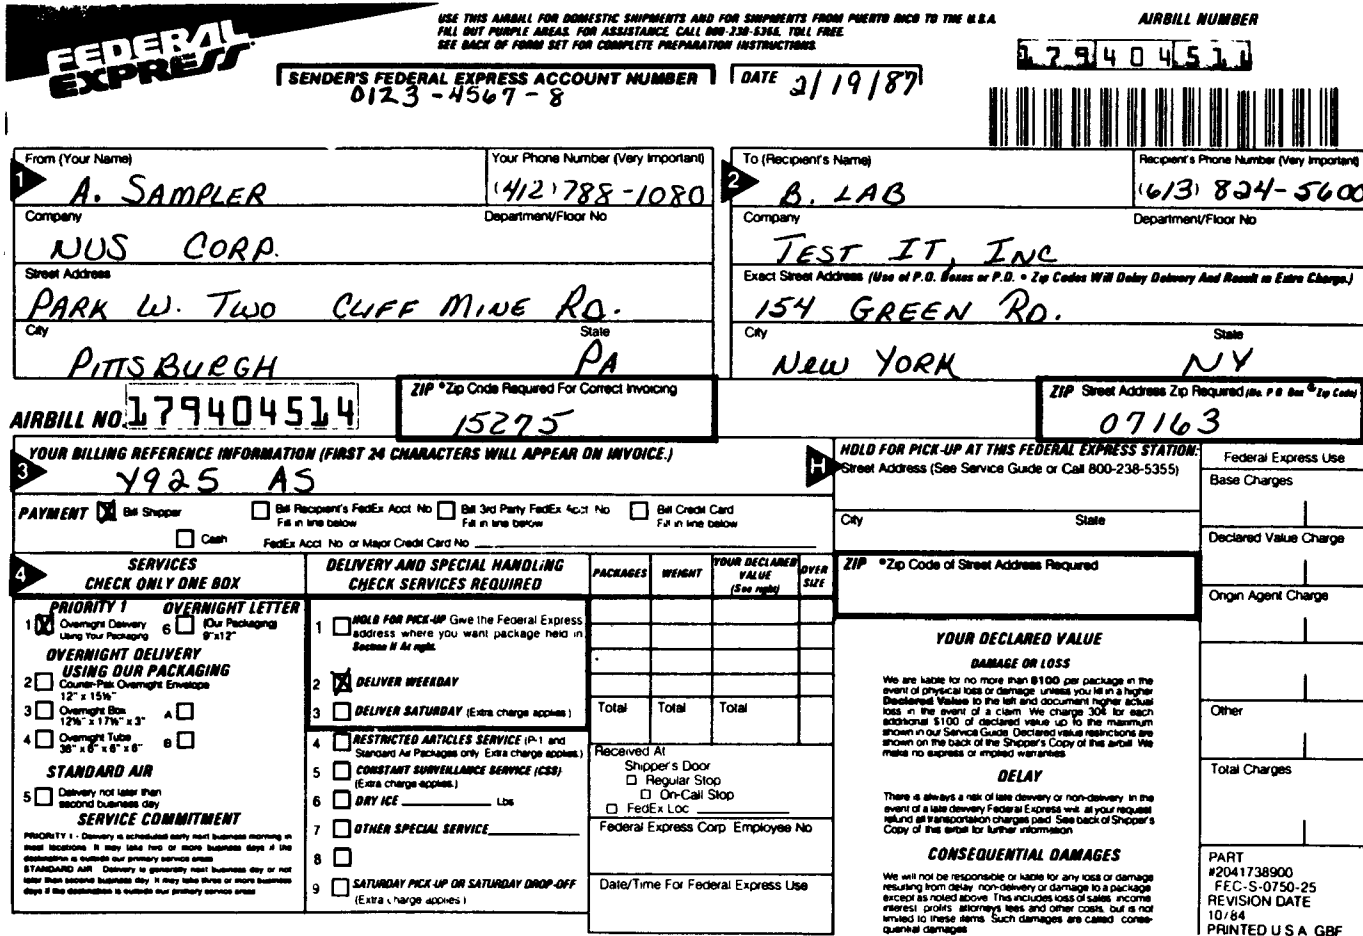 FEDERAL EXPRESS
USE THIS AIRBILL FOR DOMESTIC SHIPMENTS AND FOR SHIPMENTS FROM PUERTO RICO TO THE U.S.A.
FILL OUT PURPLE AREAS. FOR ASSISTANCE, CALL 800-238-5355, TOLL FREE.
SEE BACK OF FORM SET FOR COMPLETE PREPARATION INSTRUCTIONS.
AIRBILL NUMBER
SENDER'S FEDERAL EXPRESS ACCOUNT NUMBER
0123-4567-8
DATE 2/19/87
1
From (Your Name)
A. SAMPLER
Your Phone Number (Very Important)
(412) 788-1080
Company
Department/Floor No
NUS CORP.
Street Address
PARK W. TWO CLIFF MINE RD.
City
State
PITTSBURGH PA
2
To (Recipient's Name)
B. LAB
Recipient's Phone Number (Very Important)
(613) 824-5600
Company
Department/Floor No
TEST IT, INC
Exact Street Address (Use of P.O. Boxes or P.O. Zip Codes Will Delay Delivery And Result in Extra Charge.)
154 GREEN RD.
City
State
NEW YORK NY
AIRBILL NO. 179404514
ZIP *Zip Code Required For Correct Invoicing
15275
ZIP Street Address Zip Required (No P O Box Zip Code)
07163
3
YOUR BILLING REFERENCE INFORMATION (FIRST 24 CHARACTERS WILL APPEAR ON INVOICE.)
Y925 AS
PAYMENT Bill Shipper
Bill Recipient's FedEx Acct No
Fill in line below
Bill 3rd Party FedEx Acct No
Fill in line below
Bill Credit Card
Fill in line below
Cash
FedEx Acct No or Major Credit Card No
H
HOLD FOR PICK-UP AT THIS FEDERAL EXPRESS STATION:
Street Address (See Service Guide or Call 800-238-5355)
City
State
ZIP *Zip Code of Street Address Required
4
SERVICES
CHECK ONLY ONE BOX
PRIORITY 1
1 Overnight Delivery
Using Your Packaging
OVERNIGHT LETTER
6 (Our Packaging)
9"x12"
OVERNIGHT DELIVERY
USING OUR PACKAGING
2 Courier-Pak Overnight Envelope
12" x 15½"
3 Overnight Box
12½" x 17½" x 3"
A
4 Overnight Tube
38" x 6" x 6" x 6"
B
STANDARD AIR
5 Delivery not later than
second business day
SERVICE COMMITMENT
PRIORITY 1 - Delivery is scheduled early next business morning in
most locations. It may take two or more business days if the
destination is outside our primary service areas
STANDARD AIR Delivery is generally next business day or not
later than second business day. It may take three or more business
days if the destination is outside our primary service areas
DELIVERY AND SPECIAL HANDLING
CHECK SERVICES REQUIRED
1 HOLD FOR PICK-UP Give the Federal Express
address where you want package held in
Section H At right.
2 DELIVER WEEKDAY
3 DELIVER SATURDAY (Extra charge applies)
4 RESTRICTED ARTICLES SERVICE (P-1 and
Standard Air Packages only. Extra charge applies)
5 CONSTANT SURVEILLANCE SERVICE (CSS)
(Extra charge applies.)
6 DRY ICE Lbs
7 OTHER SPECIAL SERVICE
8
9 SATURDAY PICK-UP OR SATURDAY DROP-OFF
(Extra charge applies)
PACKAGES
WEIGHT
YOUR DECLARED
VALUE
(See right)
OVER
SIZE
Total
Total
Total
Received At
Shipper's Door
Regular Stop
On-Call Stop
FedEx Loc
Federal Express Corp Employee No
Date/Time For Federal Express Use
YOUR DECLARED VALUE
DAMAGE OR LOSS
We are liable for no more than $100 per package in the
event of physical loss or damage, unless you fill in a higher
Declared Value to the left and document higher actual
loss in the event of a claim. We charge 30¢ for each
additional $100 of declared value up to the maximum
shown in our Service Guide. Declared value restrictions are
shown on the back of the Shipper's Copy of this airbill We
make no express or implied warranties
DELAY
There is always a risk of late delivery or non-delivery In the
event of a late delivery Federal Express will at your request
refund all transportation charges paid See back of Shipper's
Copy of this airbill for further information
CONSEQUENTIAL DAMAGES
We will not be responsible or liable for any loss or damage
resulting from delay non-delivery or damage to a package
except as noted above This includes loss of sales income
interest profits attorneys fees and other costs, but is not
limited to these items Such damages are called conse-
quential damages
Federal Express Use
Base Charges
Declared Value Charge
Origin Agent Charge
Other
Total Charges
PART
#2041738900
FEC-S-0750-25
REVISION DATE
10/84
PRINTED U S A GBF